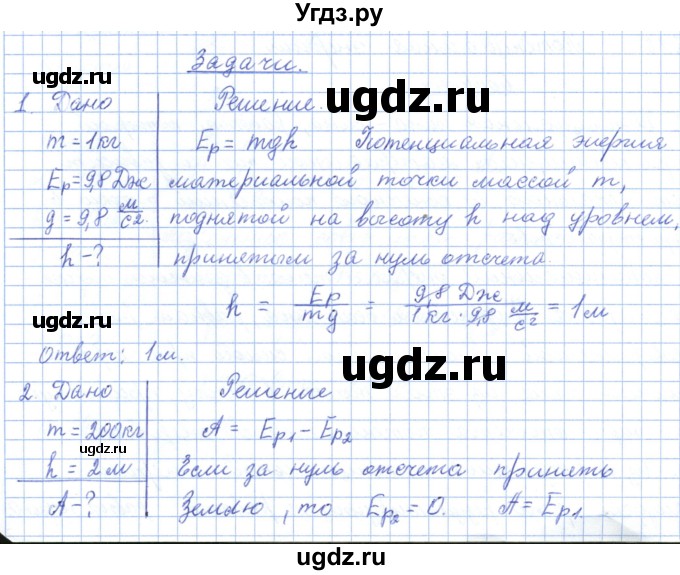 Угдз.ру
Задачи.
1. Дано Решение.
m = 1кг Ep = mgh Потенциальная энергия
Ep = 9,8 Дж материальной точки массой m,
g = 9,8 м/с2. поднятой на высоту h над уровнем,
h - ? принятым за нуль отсчета.
h = Ep/mg = 9,8 Дж/1кг · 9,8 м/с2 = 1м
Ответ: 1м.
2. Дано Решение
m = 200кг A = Ep1 - Ep2
h = 2м Если за нуль отсчета принять
A - ? Землю, то Ep2 = 0. A = Ep1.
ugdz.ru
ugdz.ru
ugdz.ru
ugdz.ru
ugdz.ru
ugdz.ru
ugdz.ru
ugdz.ru